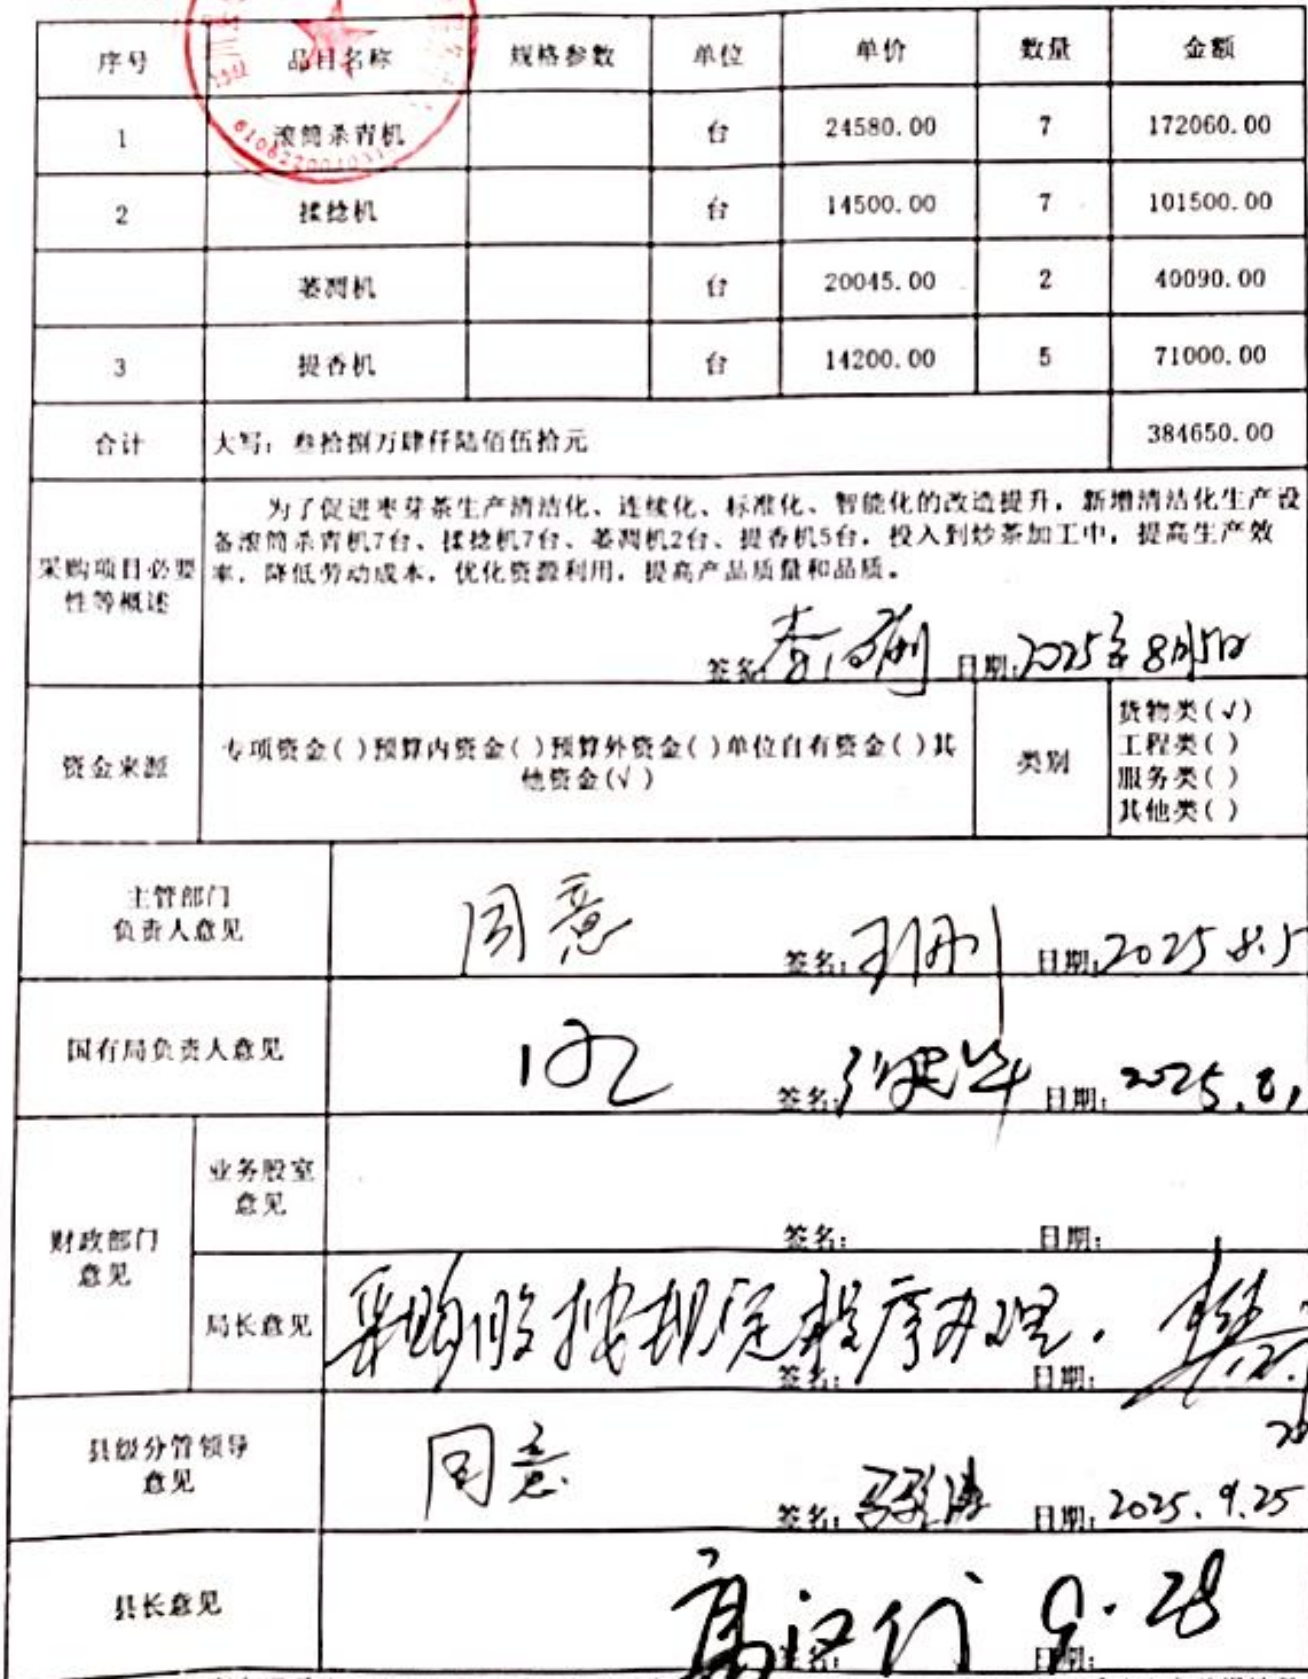 序号 品目名称 规格参数 单位 单价 数量 金额
1 滚筒杀青机 台 24580.00 7 172060.00
2 揉捻机 台 14500.00 7 101500.00
萎凋机 台 20045.00 2 40090.00
3 提香机 台 14200.00 5 71000.00
合计 大写：叁拾捌万肆仟陆佰伍拾元 384650.00
采购项目必要
性等概述
为了促进枣芽茶生产清洁化、连续化、标准化、智能化的改造提升，新增清洁化生产设
备滚筒杀青机7台、揉捻机7台、萎凋机2台、提香机5台，投入到炒茶加工中，提高生产效
率，降低劳动成本，优化资源利用，提高产品质量和品质。
签名 日期：2025年8月5日
资金来源
专项资金( )预算内资金( )预算外资金( )单位自有资金( )其
他资金(√)
类别
货物类(√)
工程类( )
服务类( )
其他类( )
主管部门
负责人意见
同意
签名： 日期：2025.8.5
国有局负责人意见
签名： 日期：2025.
财政部门
意见
业务股室
意见
签名： 日期：
局长意见
采购股按规定程序办理.
签名： 日期：
县级分管领导
意见
同意
签名： 日期：2025.9.25
县长意见
9.28
日期：